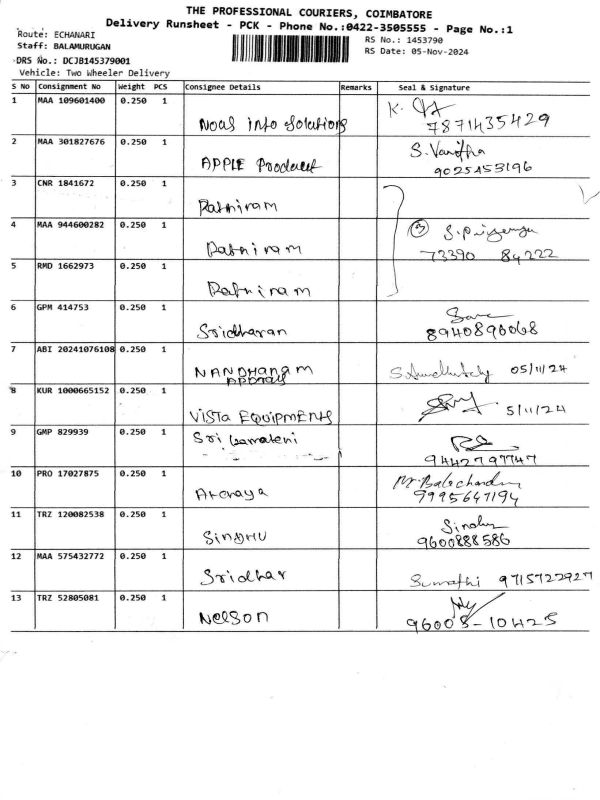 THE PROFESSIONAL COURIERS, COIMBATORE
Delivery Runsheet - PCK - Phone No.:0422-3505555 - Page No.:1
Route: ECHANARI
Staff: BALAMURUGAN
DRS No.: DCJB145379001
Vehicle: Two Wheeler Delivery
RS No.: 1453790
RS Date: 05-Nov-2024
S No Consignment No Weight PCS Consignee Details Remarks Seal & Signature
1 MAA 109601400 0.250 1 Noas into Solutions K.
7871435429
2 MAA 301827676 0.250 1 APPLE Product S. Vanitha
9025453196
3 CNR 1841672 0.250 1 Ratniram
4 MAA 944600282 0.250 1 Ratniram 3 S. Priyanga
73390 84222
5 RMD 1662973 0.250 1 Ratniram
6 GPM 414753 0.250 1 Sridharan
8940890068
7 ABI 20241076108 0.250 1 NANDHANAM 05/11/24
8 KUR 1000665152 0.250 1 VISTA EQUIPMENTS 5/11/24
9 GMP 829939 0.250 1 Sri
9442797747
10 PRO 17027875 0.250 1 M. Balachandran
9995647194
11 TRZ 120082538 0.250 1 SINDHU Sindhu
9600888586
12 MAA 575432772 0.250 1 Sridhar Sumathi 9715722927
13 TRZ 52805081 0.250 1 Nelson
96005-10425